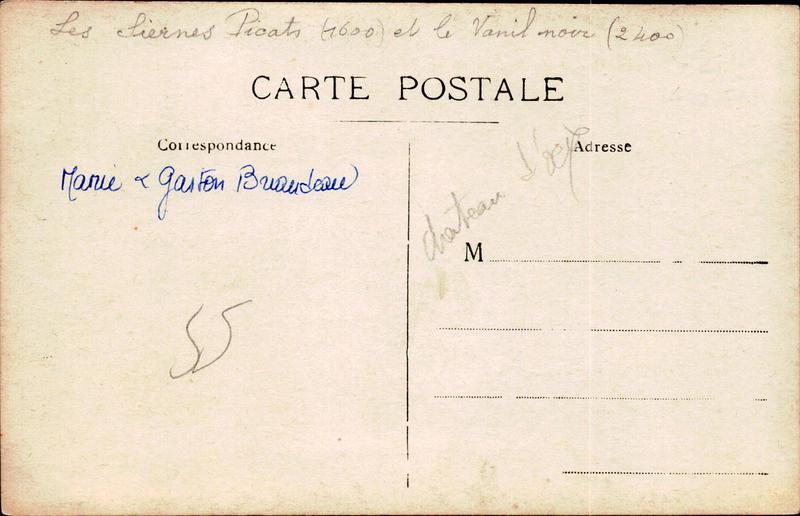 Les Siernes Picats (1600) et le Vanil noir (2400)
CARTE POSTALE
Correspondance
Adresse
Marie & Gaston Briandeau
Château d'Oex
M
55